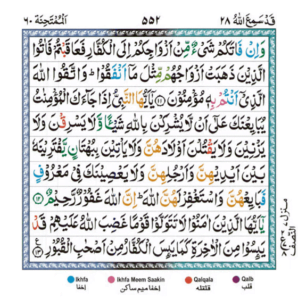 قَدْ سَمِعَ اللّٰهُ ٢٨
٥٥٢
اَلْمُمْتَحِنَة ٦٠
وَاِنْ فَاتَكُمْ شَىْءٌ مِّنْ اَزْوَاجِكُمْ اِلَى الْكُفَّارِ فَعَاقَبْتُمْ فَاٰتُوا
الَّذِيْنَ ذَهَبَتْ اَزْوَاجُهُمْ مِّثْلَ مَاۤ اَنْفَقُوْا ؕ وَاتَّقُوا اللّٰهَ
الَّذِىْۤ اَنْتُمْ بِهٖ مُؤْمِنُوْنَ ﴿۱۱﴾ يٰۤاَيُّهَا النَّبِىُّ اِذَا جَآءَكَ الْمُؤْمِنٰتُ
يُبَايِعْنَكَ عَلٰٓى اَنْ لَّا يُشْرِكْنَ بِاللّٰهِ شَيْئًا وَّلَا يَسْرِقْنَ وَلَا
يَزْنِيْنَ وَلَا يَقْتُلْنَ اَوْلَادَهُنَّ وَلَا يَاْتِيْنَ بِبُهْتَانٍ يَّفْتَرِيْنَهٗ
بَيْنَ اَيْدِيْهِنَّ وَاَرْجُلِهِنَّ وَلَا يَعْصِيْنَكَ فِىْ مَعْرُوْفٍ
فَبَايِعْهُنَّ وَاسْتَغْفِرْ لَهُنَّ اللّٰهَ ؕ اِنَّ اللّٰهَ غَفُوْرٌ رَّحِيْمٌ ﴿۱۲﴾
يٰۤاَيُّهَا الَّذِيْنَ اٰمَنُوْا لَا تَتَوَلَّوْا قَوْمًا غَضِبَ اللّٰهُ عَلَيْهِمْ قَدْ
يَئِسُوْا مِنَ الْاٰخِرَةِ كَمَا يَئِسَ الْكُفَّارُ مِنْ اَصْحٰبِ الْقُبُوْرِ ﴿۱۳﴾
Ikhfa Ikhfa Meem Saakin Qalqala Qalb
اخفا اخفا میم ساکن قلقلہ قلب